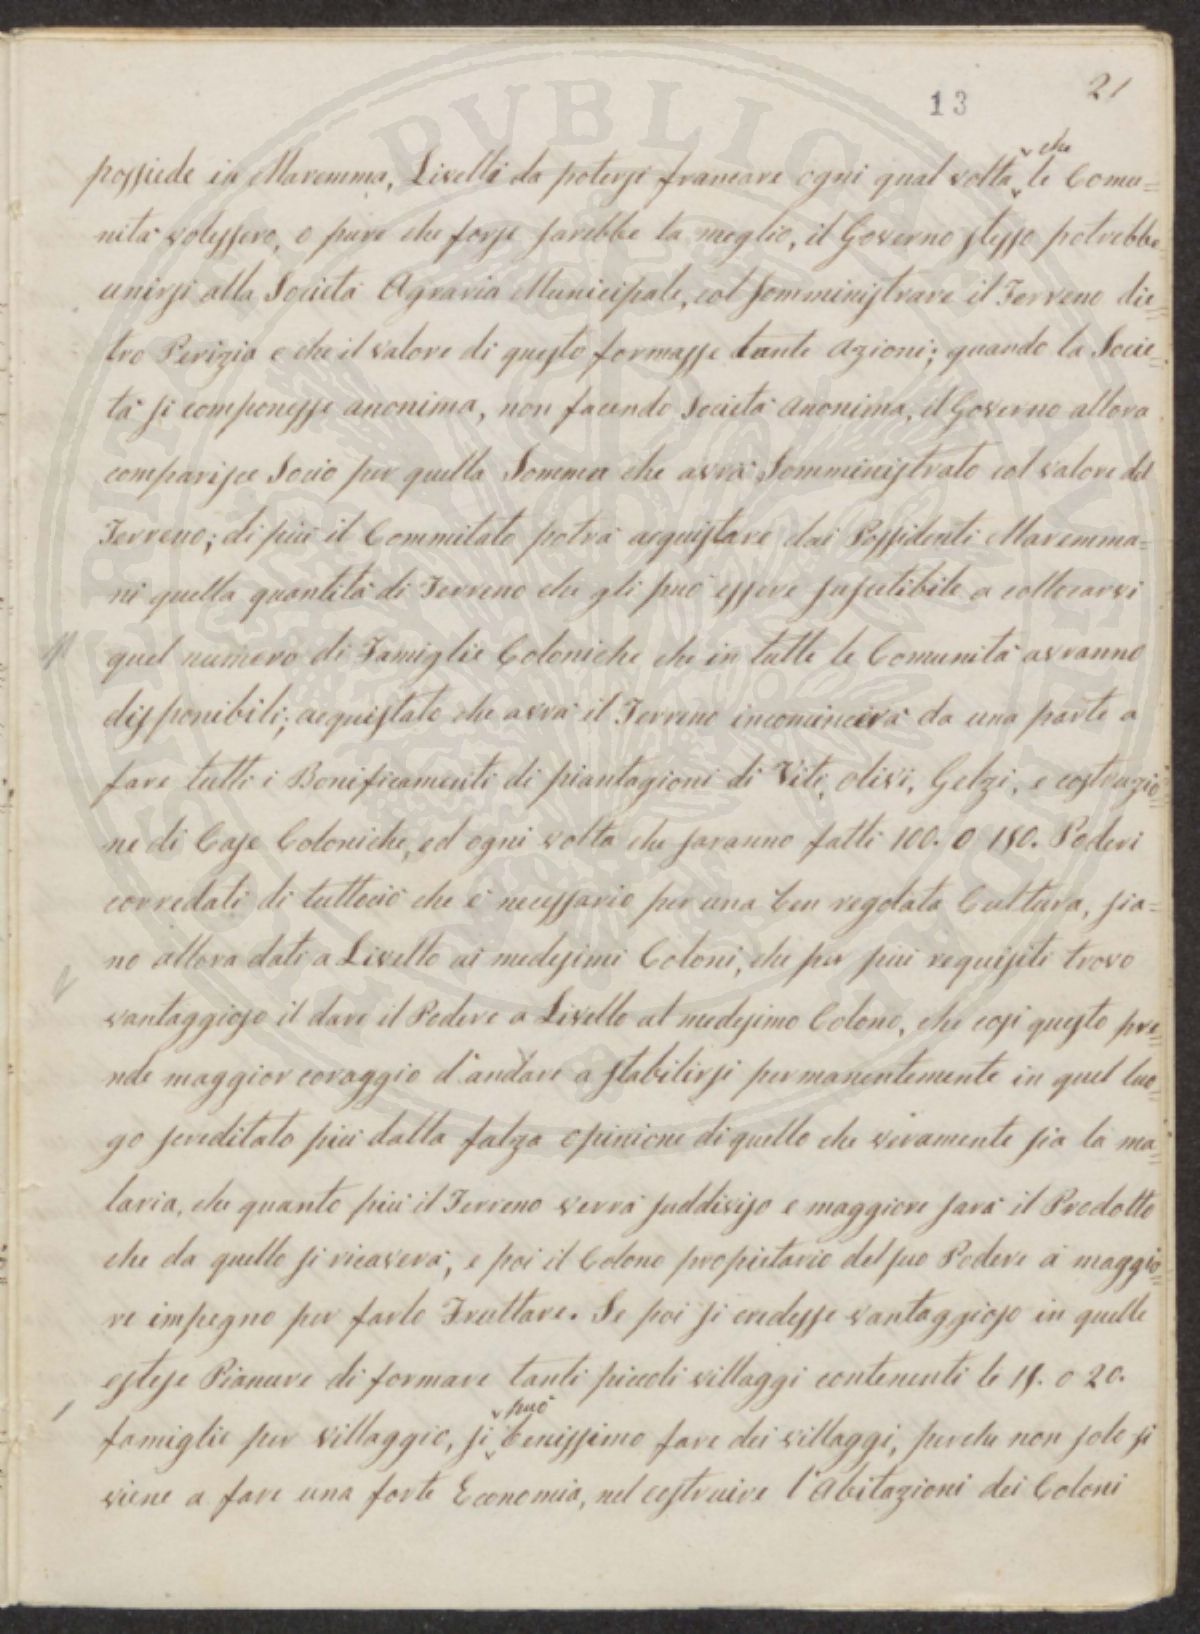 13
21
possiede in Maremma, Livelli da potersi francare ogni qual volta che le Comu=
nità volessero, o pure che forse sarebbe la meglio, il Governo stesso potrebbe
unirsi alla Società Agraria Municipale, col somministrare il Terreno die=
tro Perizia e che il valore di questo formasse tante Azioni; quando la Socie=
tà si componesse anonima, non facendo Società Anonima, il Governo allora
comparisce Socio per quella Somma che avrà Somministrato col valore del
Terreno; di più il Commitato potrà acquistare dai Possidenti Maremma=
ni quella quantità di Terreno che gli può essere suscetibile a collocarvi
quel numero di Famiglie Coloniche che in tutte le Comunità avranno
disponibili; acquistato che avrà il Terreno incomincierà da una parte a
fare tutti i Bonificamenti di piantagioni di Viti, olivi, Gelzi, e costruzio=
ne di Case Coloniche, ed ogni volta che saranno fatti 100. o 150. Poderi
corredati di tuttociò che è necessario per una ben regolata Cultura, sia=
no allora dati a Livello ai medesimi Coloni, che per più requisiti trovo
vantaggioso il dare il Podere a Livello al medesimo Colono, che così questo pre=
nde maggior coraggio d'andare a stabilirsi permanentemente in quel luo=
go screditato più dalla falza opinione di quello che veramente sia la ma=
laria, che quanto più il Terreno verrà suddiviso e maggiore sarà il Prodotto
che da quello si ricaverà, e poi il Colono propietario del suo Podere à maggio=
re impegno per farlo Fruttare. Se poi si credesse vantaggioso in quelle
estese Pianure di formare tanti piccoli villaggi contenenti le 15. o 20.
famiglie per villaggio, si può benissimo fare dei villaggi, perche non solo si
viene a fare una forte Economia, nel costruire l'Abitazioni dei Coloni